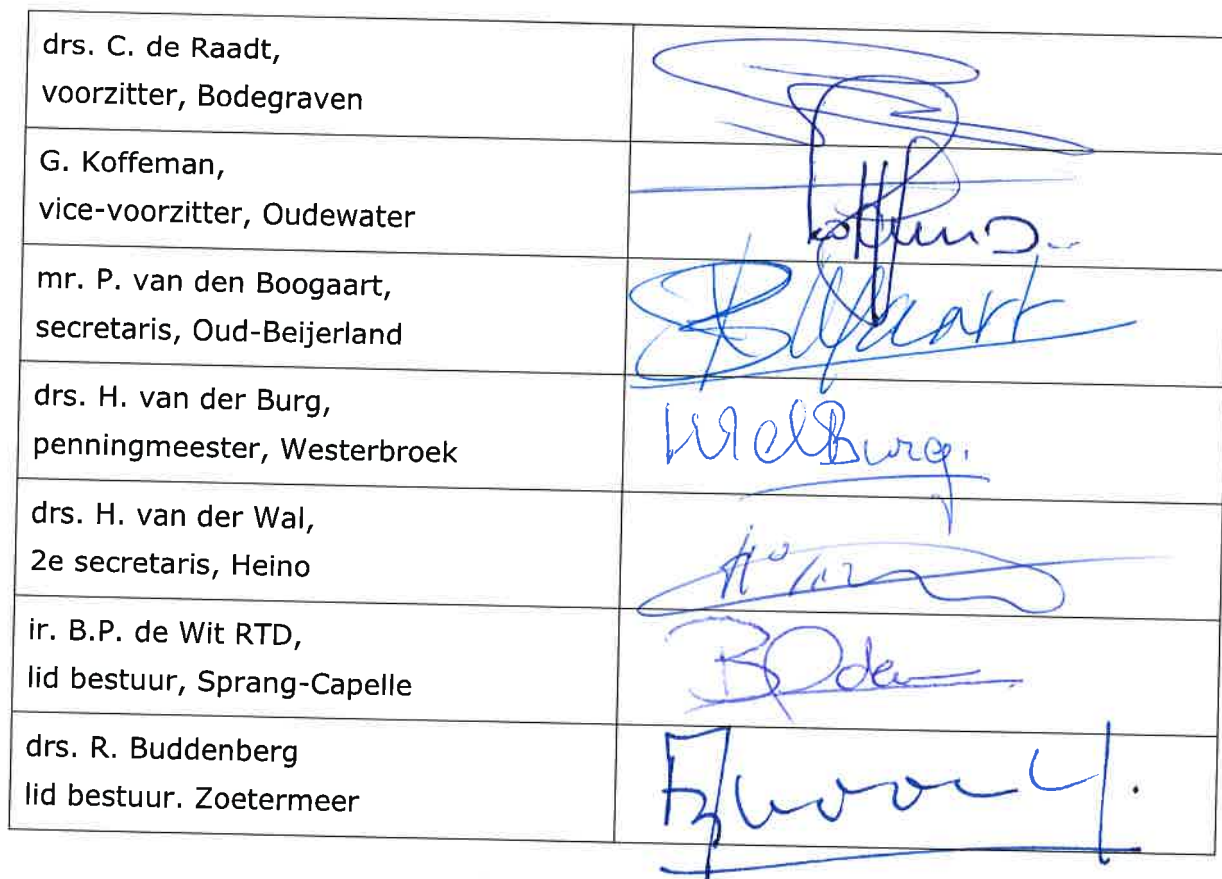 drs. C. de Raadt,
voorzitter, Bodegraven
G. Koffeman,
vice-voorzitter, Oudewater
mr. P. van den Boogaart,
secretaris, Oud-Beijerland
drs. H. van der Burg,
penningmeester, Westerbroek
drs. H. van der Wal,
2e secretaris, Heino
ir. B.P. de Wit RTD,
lid bestuur, Sprang-Capelle
drs. R. Buddenberg
lid bestuur. Zoetermeer